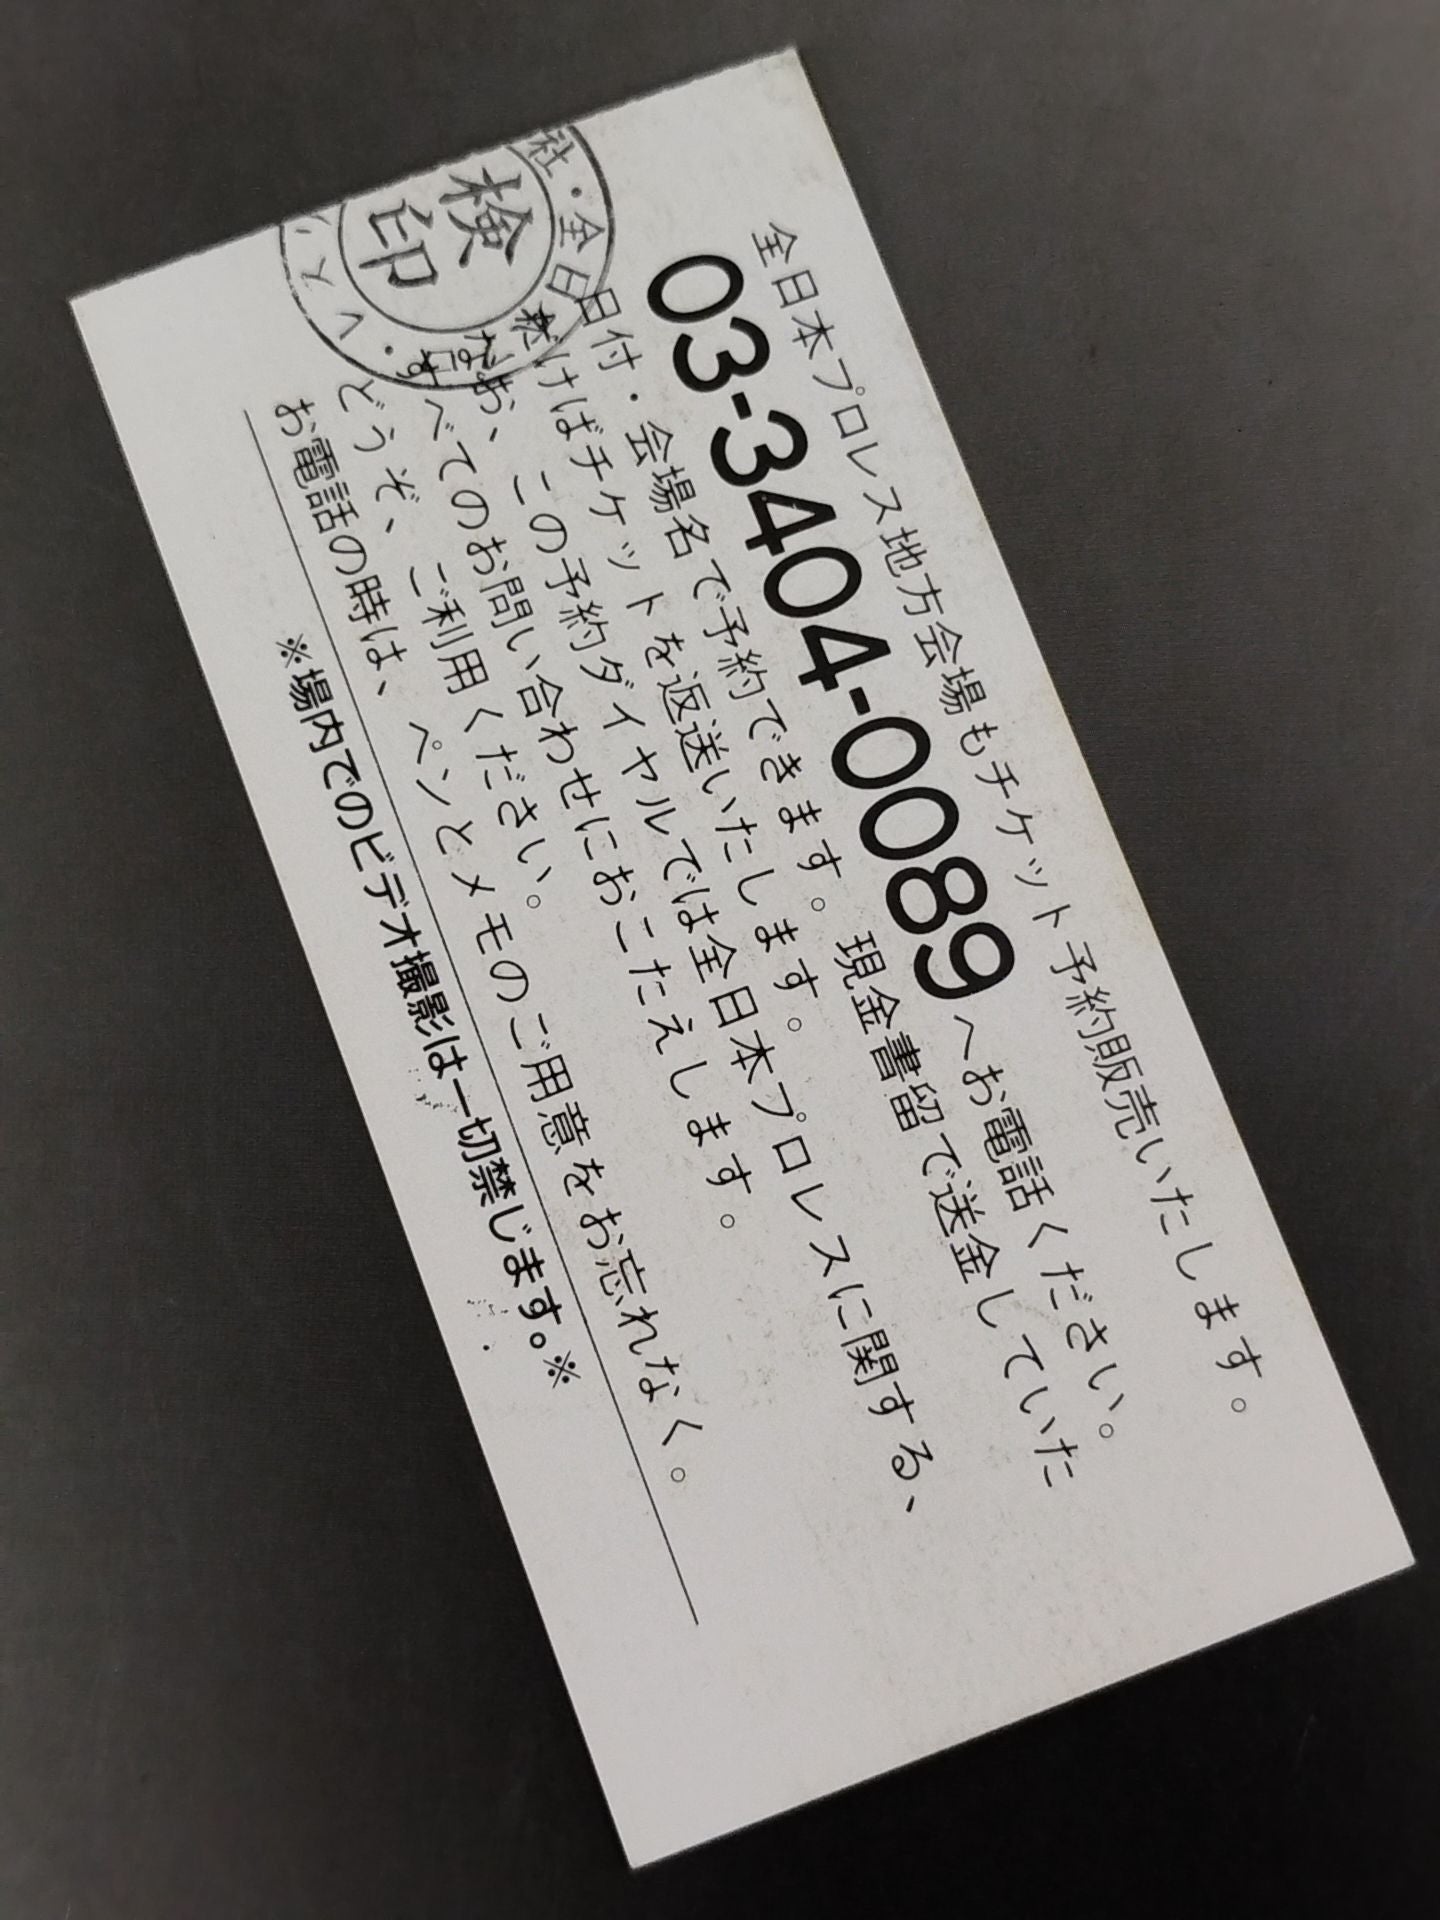 全日本プロレス地方会場もチケット予約販売いたします。
03-3404-0089へお電話ください。
日付・会場名で予約できます。現金書留で送金していた
だけばチケットを返送いたします。
なお、この予約ダイヤルでは全日本プロレスに関する、
すべてのお問い合わせにおこたえします。
どうぞ、ご利用ください。
お電話の時は、ペンとメモのご用意をお忘れなく。
※場内でのビデオ撮影は一切禁じます。※
検印
社・全日